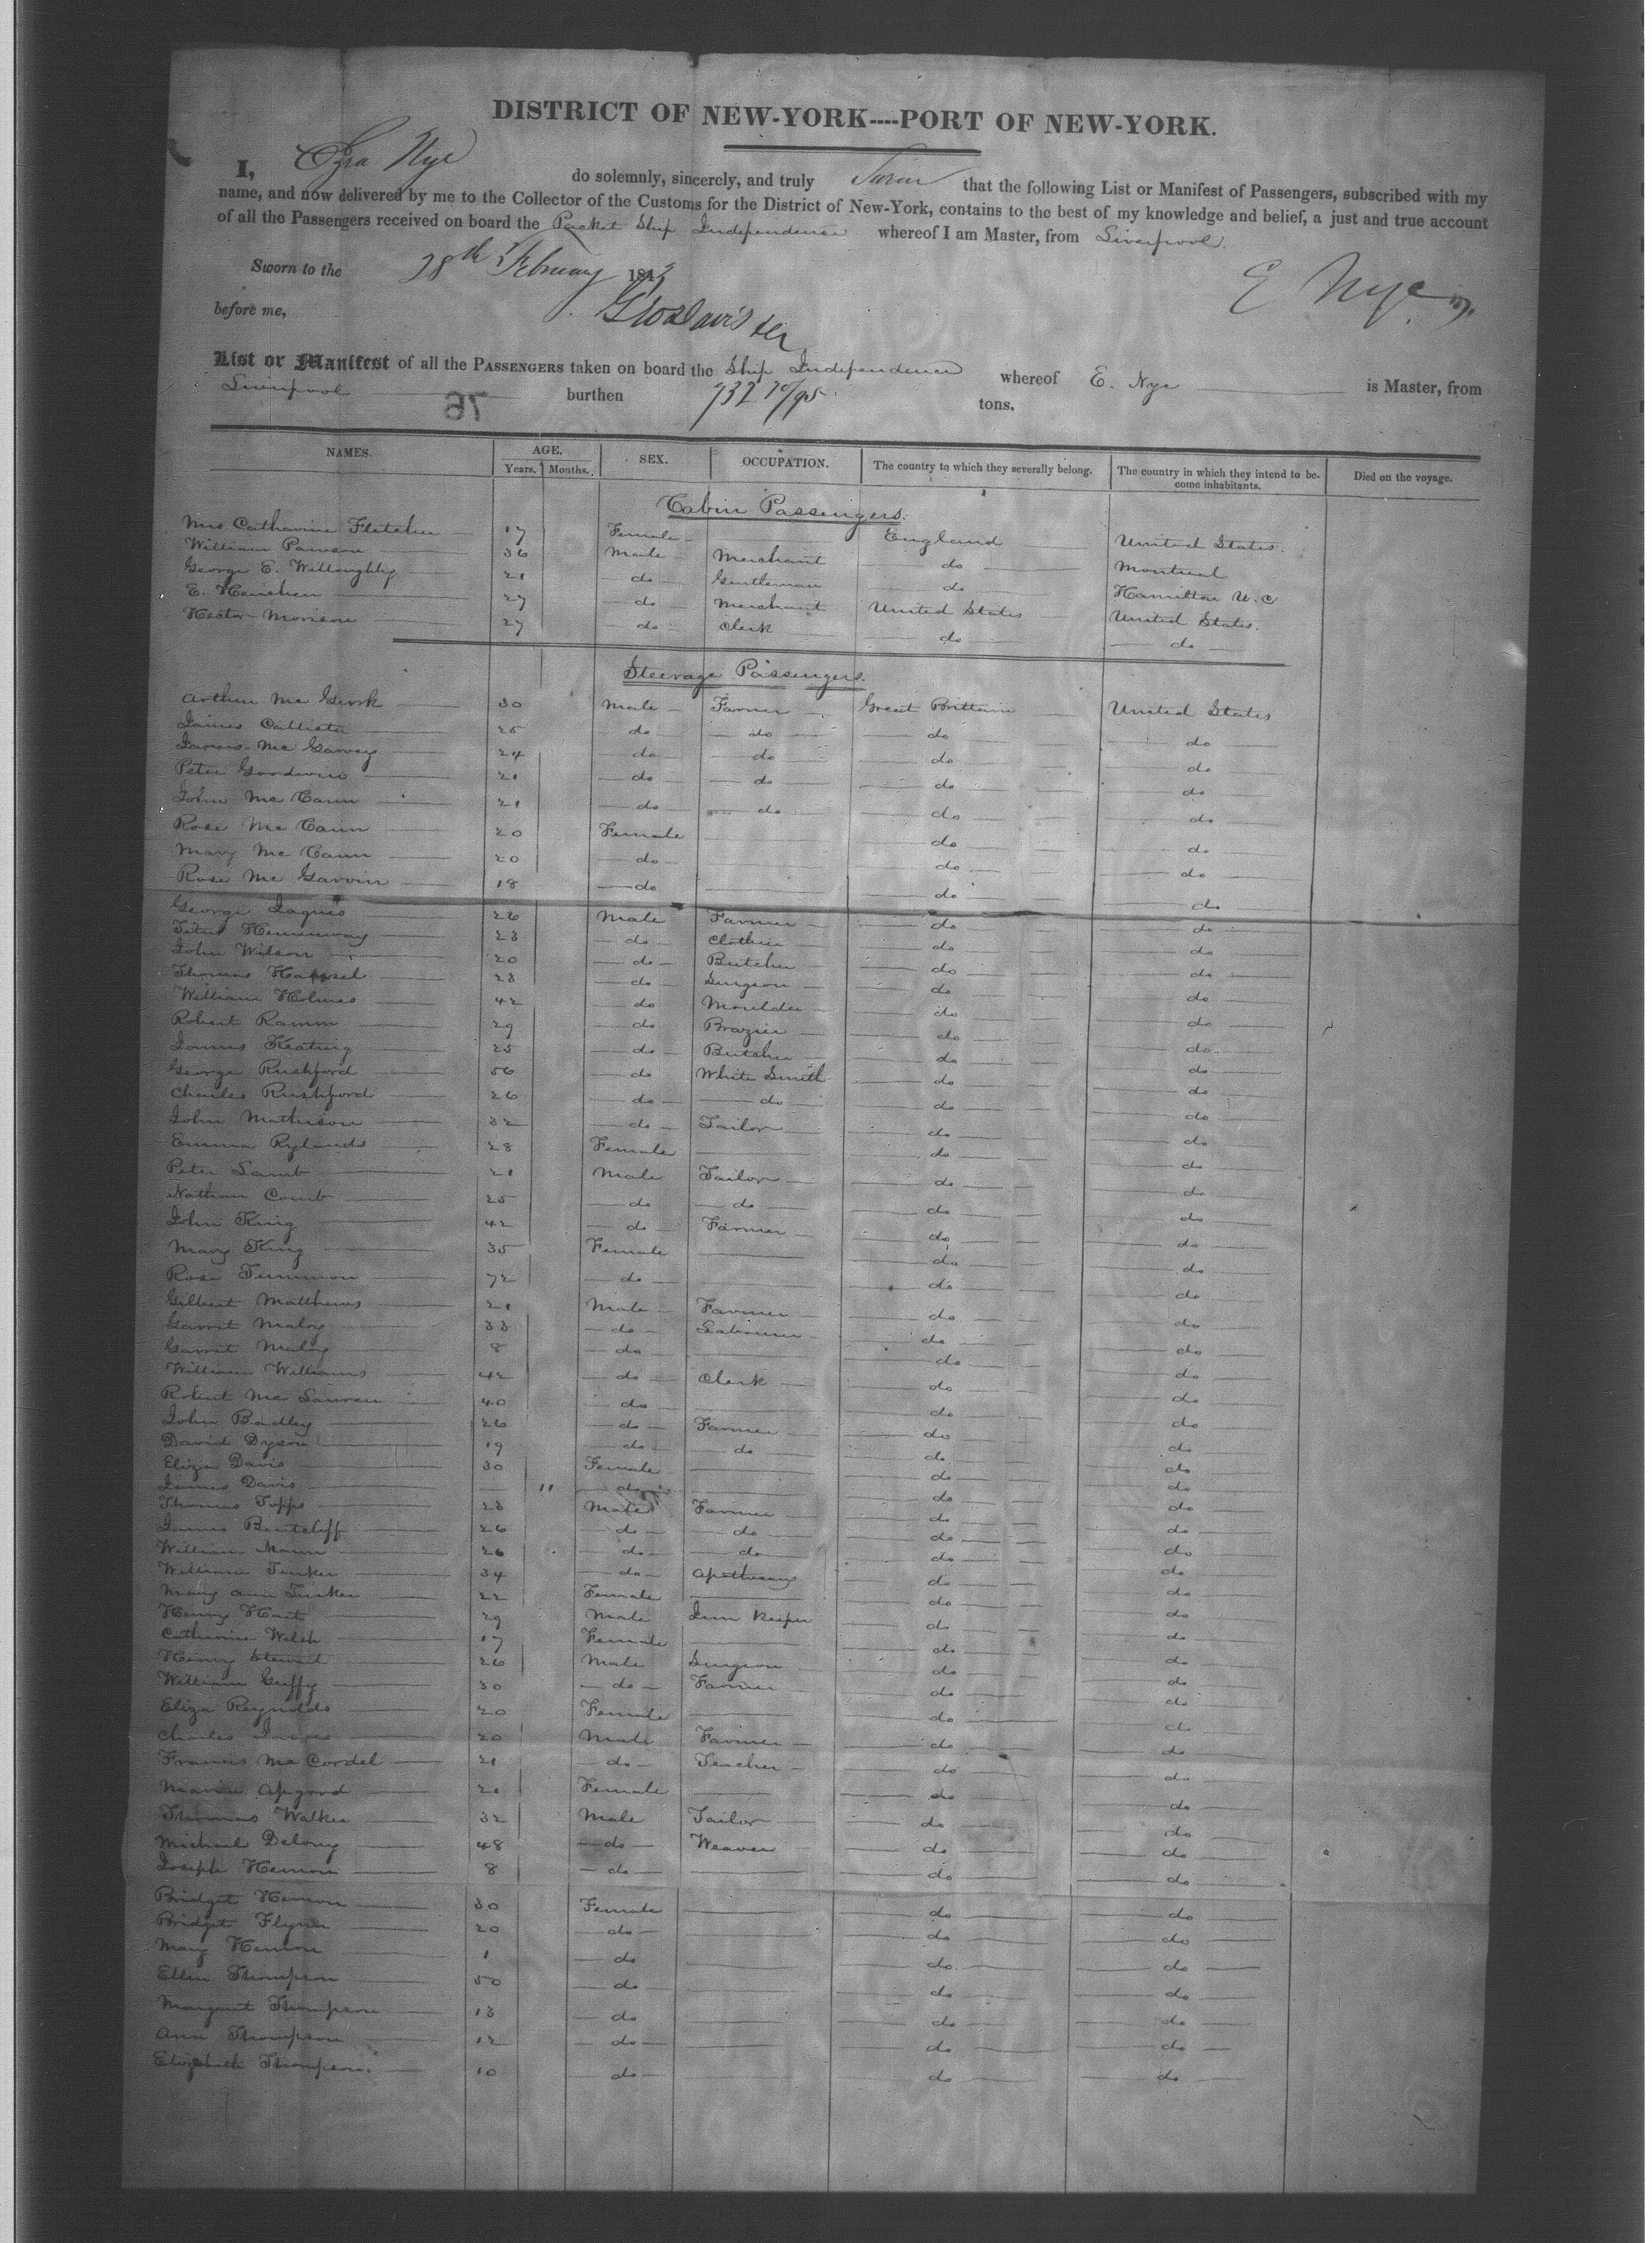 DISTRICT OF NEW-YORK----PORT OF NEW-YORK.
I, Ezra Nye do solemnly, sincerely, and truly Swear that the following List or Manifest of Passengers, subscribed with my
name, and now delivered by me to the Collector of the Customs for the District of New-York, contains to the best of my knowledge and belief, a just and true account
of all the Passengers received on board the Packet Ship Independence whereof I am Master, from Liverpool.
Sworn to the 28th February 1843
E Nye
before me, Geo Davis
List or Manifest of all the PASSENGERS taken on board the Ship Independence whereof E. Nye is Master, from
Liverpool burthen 732 70/95 tons.
NAMES. AGE. Years. Months. SEX. OCCUPATION. The country to which they severally belong. The country in which they intend to become inhabitants. Died on the voyage.
Cabin Passengers.
Mrs Catharine Fletcher 17 Female England United States.
William Pawson 36 Male Merchant do Montreal
George E. Willoughby 21 do Gentleman do Hamilton U.C
E. Henchen 27 do Merchant United States United States.
Hector Morison 27 do Clerk do do
Steerage Passengers.
Arthur Mc Gurk 30 Male Farmer Great Brittain United States
James Callister 25 do do do do
James Mc Garvey 24 do do do do
Peter Goodwin 21 do do do do
John Mc Cann 21 do do do do
Rose Mc Cann 20 Female do do
Mary Mc Cann 20 do do do
Rose Mc Garvin 18 do do do
George Jaques 26 Male Farmer do do
Titus Hemenway 23 do Clothier do do
John Wilson 20 do Butcher do do
Thomas 23 do Surgeon do do
William Holmes 42 do Moulder do do
Robert Ramm 29 do Brazier do do
James Keating 25 do Butcher do do
George Rushford 56 do White Smith do do
Charles Rushford 26 do do do do
John Mathison 32 do Tailor do do
Emma Rylands 28 Female do do
Peter Lamb 21 Male Tailor do do
Nathan Comb 25 do do do do
John King 42 do Farmer do do
Mary King 35 Female do do
Rose Tummon 72 do do do
Gilbert Matthews 21 Male Farmer do do
Garrit Maloy 33 do Labourer do do
Garrit Maloy 8 do do do
William Williams 42 do Clerk do do
Robert Mc Lauren 40 do do do
John Bradley 26 do Farmer do do
David Dyson 19 do do do do
Eliza Davis 30 Female do do
James Davis " do do do
Thomas Topps 23 Male Farmer do do
James Bentcliff 26 do do do do
William Mann 26 do do do do
William Tinker 34 do Apothecary do do
Mary Ann Tinker 22 Female do do
Henry Hart 29 Male Inn Keeper do do
Catharine Welsh 17 Female do do
Henry Stewart 26 Male Surgeon do do
William Guffy 30 do Farmer do do
Eliza Reynolds 20 Female do do
Charles James 20 Male Farmer do do
Francis Mc Cordel 21 do Teacher do do
Maria Apgood 21 Female do do
Thomas Walker 32 Male Tailor do do
Michael Delony 48 do Weaver do do
Joseph Hernon 8 do do do
Bridget Hernon 30 Female do do
Bridget Flynn 20 do do do
Mary Hernon 1 do do do
Ellen Thompson 50 do do do
Margaret Thompson 13 do do do
Ann Thompson 12 do do do
Elizabeth Thompson 10 do do do